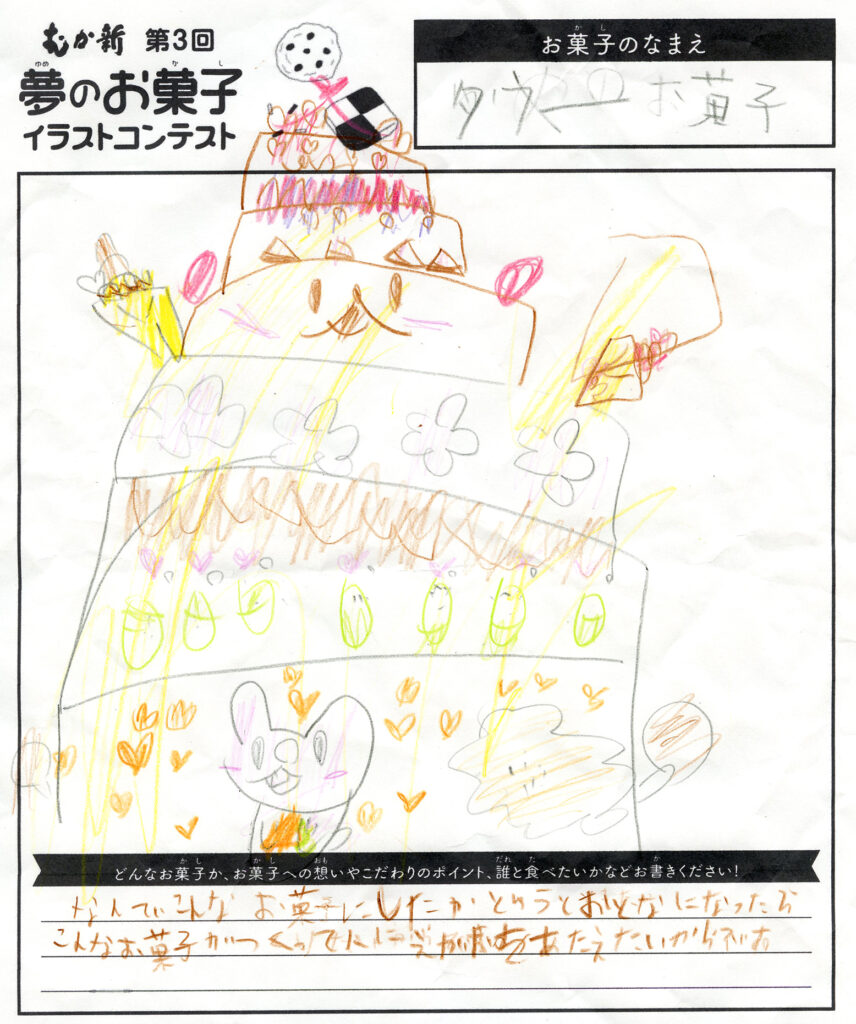 むか新 第3回
夢のお菓子
ゆめ かし
イラストコンテスト
お菓子のなまえ
かし
タワーのお菓子
どんなお菓子か、お菓子への想いやこだわりのポイント、誰と食べたいかなどお書きください!
かし かし おも だれ た か
なんでこんな お菓子にしたかというとおとなになったら
こんなお菓子がつくって人に あたえたいからです